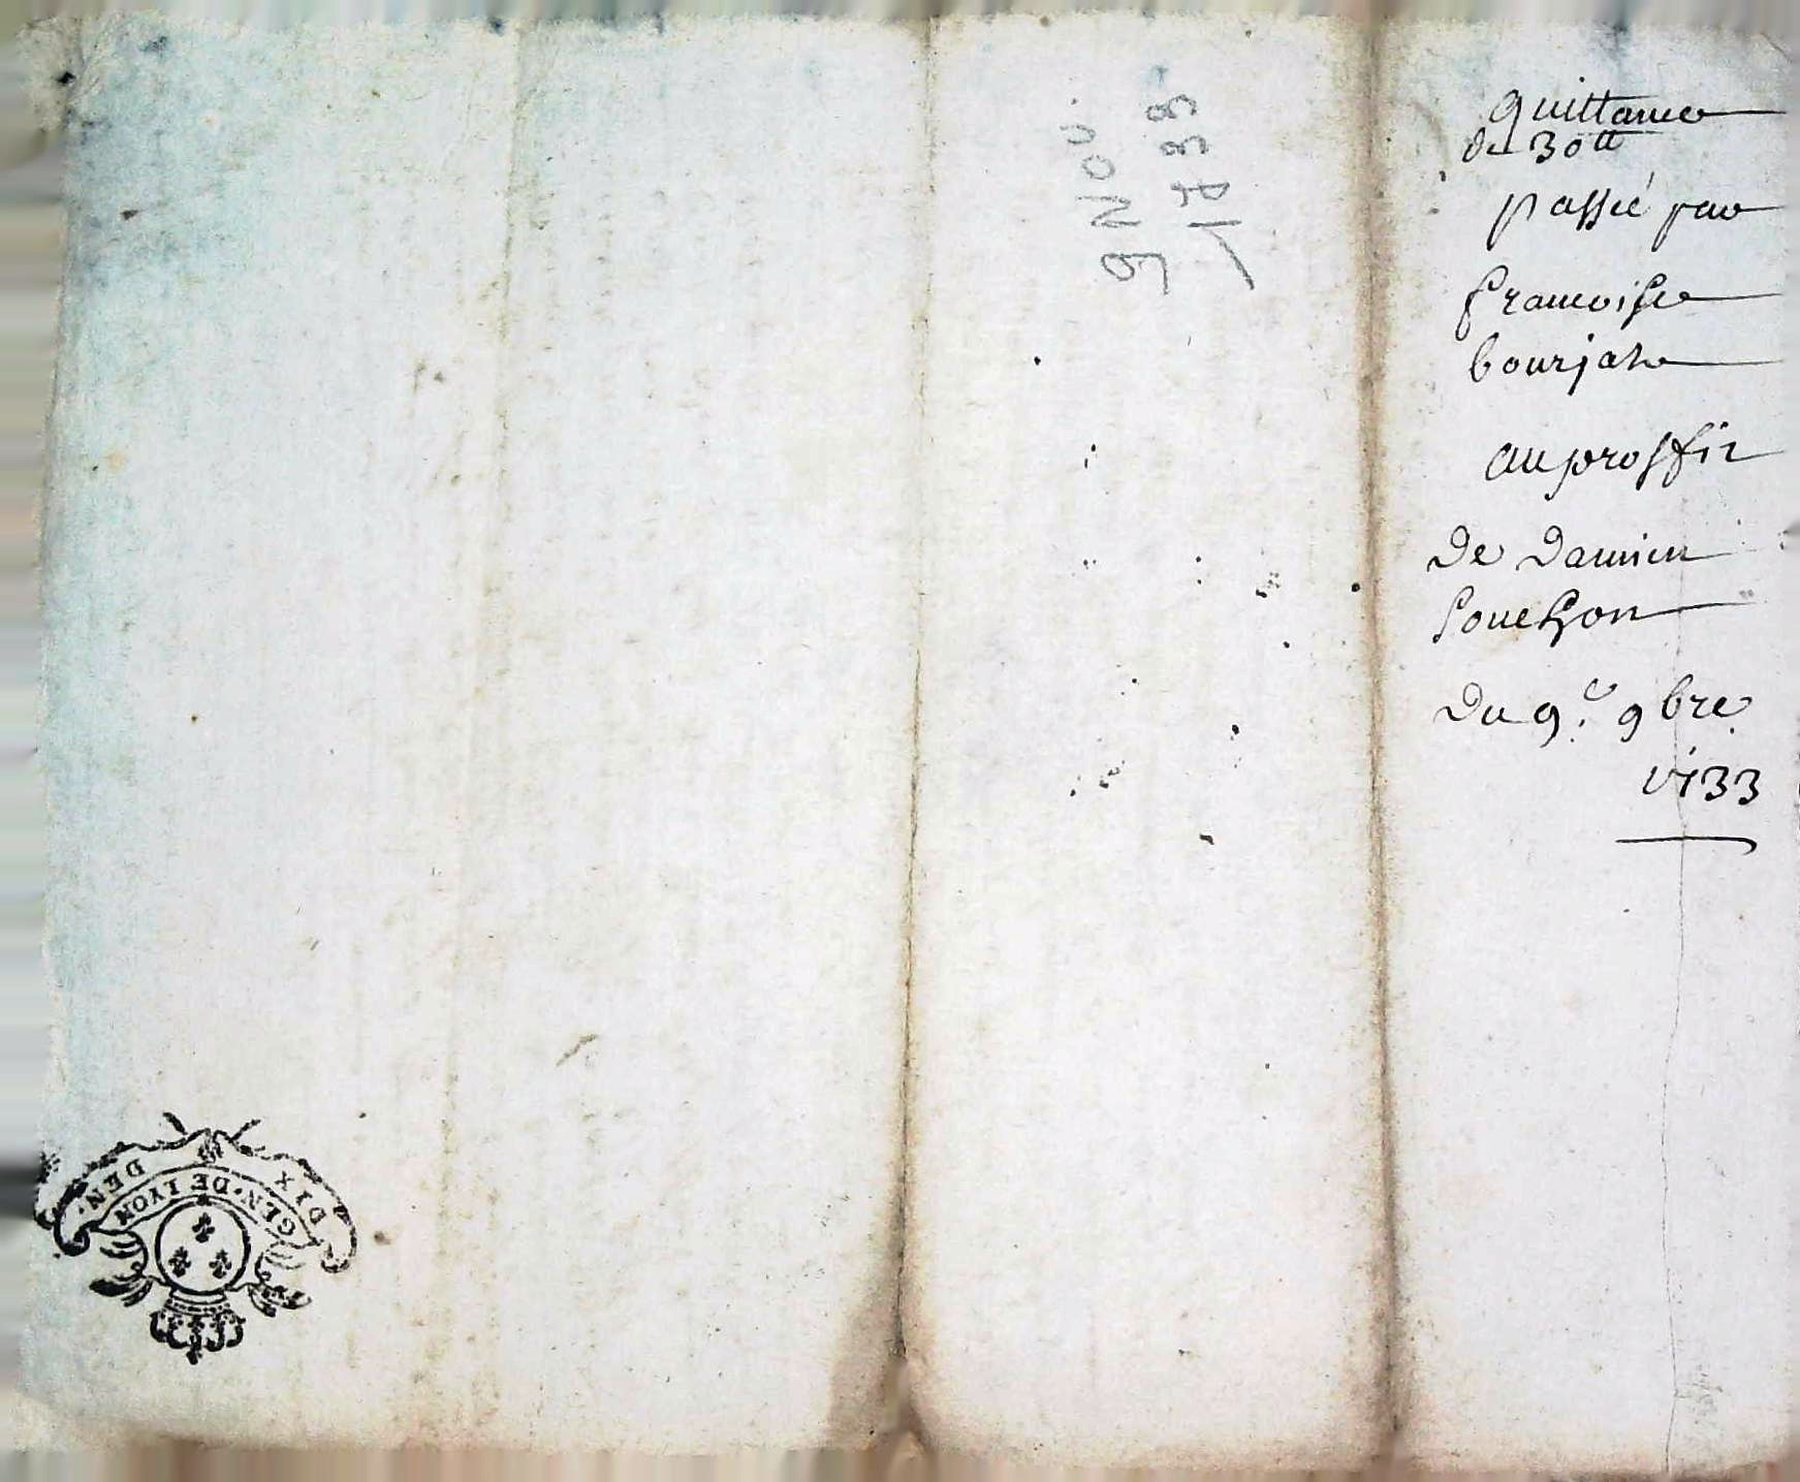 quittance
de 30tt
passée par
francoise
bourjat
au proffit
de damien
Souchon
du 9.e 9bre
1733
9 Nov.
1733
DIX DEN.
GEN. DE LYON